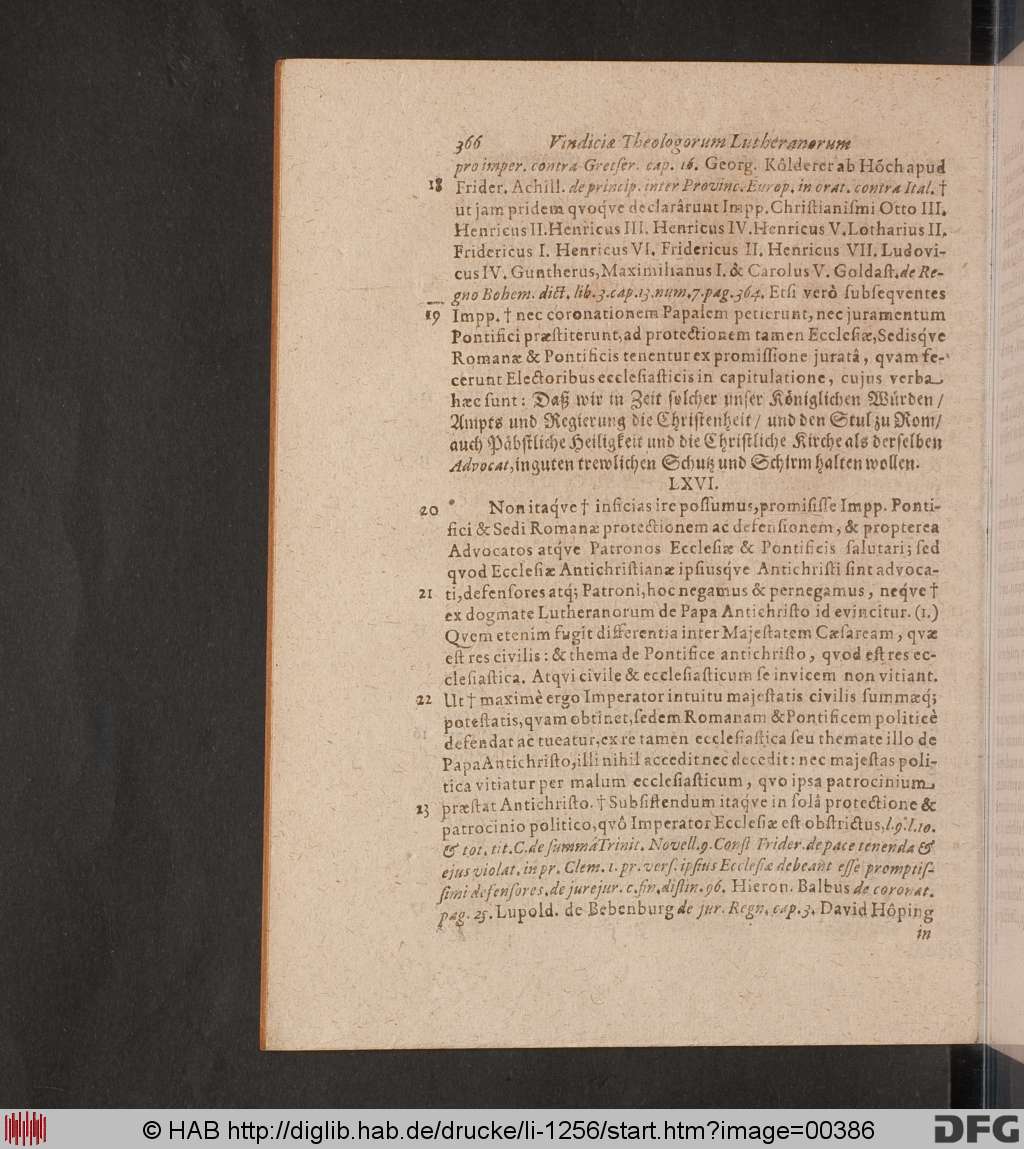 366 Vindiciæ Theologorum Lutheranorum
pro imper. contra Gretser. cap. 16. Georg. Kôlderer ab Hôch apud
18 Frider. Achill. de princip. inter Provinc. Europ. in orat. contra Ital. †
ut jam pridem qvoqve declarârunt Impp. Christianismi Otto III.
Henricus II. Henricus III. Henricus IV. Henricus V. Lotharius II.
Fridericus I. Henricus VI. Fridericus II. Henricus VII. Ludovi-
cus IV. Guntherus, Maximilianus I. & Carolus V. Goldast. de Re-
gno Bohem. dict. lib. 3. cap. 13. num. 7. pag. 364. Etsi verò subseqventes
19 Impp. † nec coronationem Papalem petierunt, nec juramentum
Pontifici præstiterunt, ad protectionem tamen Ecclesiæ, Sedisq́ve
Romanæ & Pontificis tenentur ex promissione juratâ, qvam fe-
cerunt Electoribus ecclesiasticis in capitulatione, cujus verba
hæc sunt: Daß wir in Zeit solcher unser Königlichen Würden /
Ampts und Regierung die Christenheit / und den Stul zu Rom /
auch Päbstliche Heiligkeit und die Christliche Kirche als derselben
Advocat, in guten trewlichen Schutz und Schirm halten wollen.
LXVI.
20 * Non itaq́ve † inficias ire possumus, promisisse Impp. Ponti-
fici & Sedi Romanæ protectionem ac defensionem, & propterea
Advocatos atq́ve Patronos Ecclesiæ & Pontificis salutari; sed
qvod Ecclesiæ Antichristianæ ipsiusq́ve Antichristi sint advoca-
21 ti, defensores atq́; Patroni, hoc negamus & pernegamus, neq́ve †
ex dogmate Lutheranorum de Papa Antichristo id evincitur. (1.)
Qvem etenim fugit differentia inter Majestatem Cæsaream, qvæ
est res civilis: & thema de Pontifice antichristo, qvod est res ec-
clesiastica. Atqvi civile & ecclesiasticum se invicem non vitiant.
22 Ut † maximè ergo Imperator intuitu majestatis civilis summæq́;
potestatis, qvam obtinet, sedem Romanam & Pontificem politicè
defendat ac tueatur, ex re tamen ecclesiastica seu themate illo de
Papa Antichristo, illi nihil accedit nec decedit: nec majestas poli-
tica vitiatur per malum ecclesiasticum, qvo ipsa patrocinium
23 præstat Antichristo. † Subsistendum itaqve in solâ protectione &
patrocinio politico, qvô Imperator Ecclesiæ est obstrictus, l. 9. l. 10.
& tot. tit. C. de summâ Trinit. Novell. 9. Const Frider. de pace tenenda &
ejus violat. in pr. Clem. 1. pr. vers. ipsius Ecclesiæ debeant esse promptis-
simi defensores. de jurejur. c. fin. distin. 96. Hieron. Balbus de coronat.
pag. 25. Lupold. de Bebenburg de jur. Regn. cap. 3. David Hôping
in
© HAB http://diglib.hab.de/drucke/li-1256/start.htm?image=00386
DFG